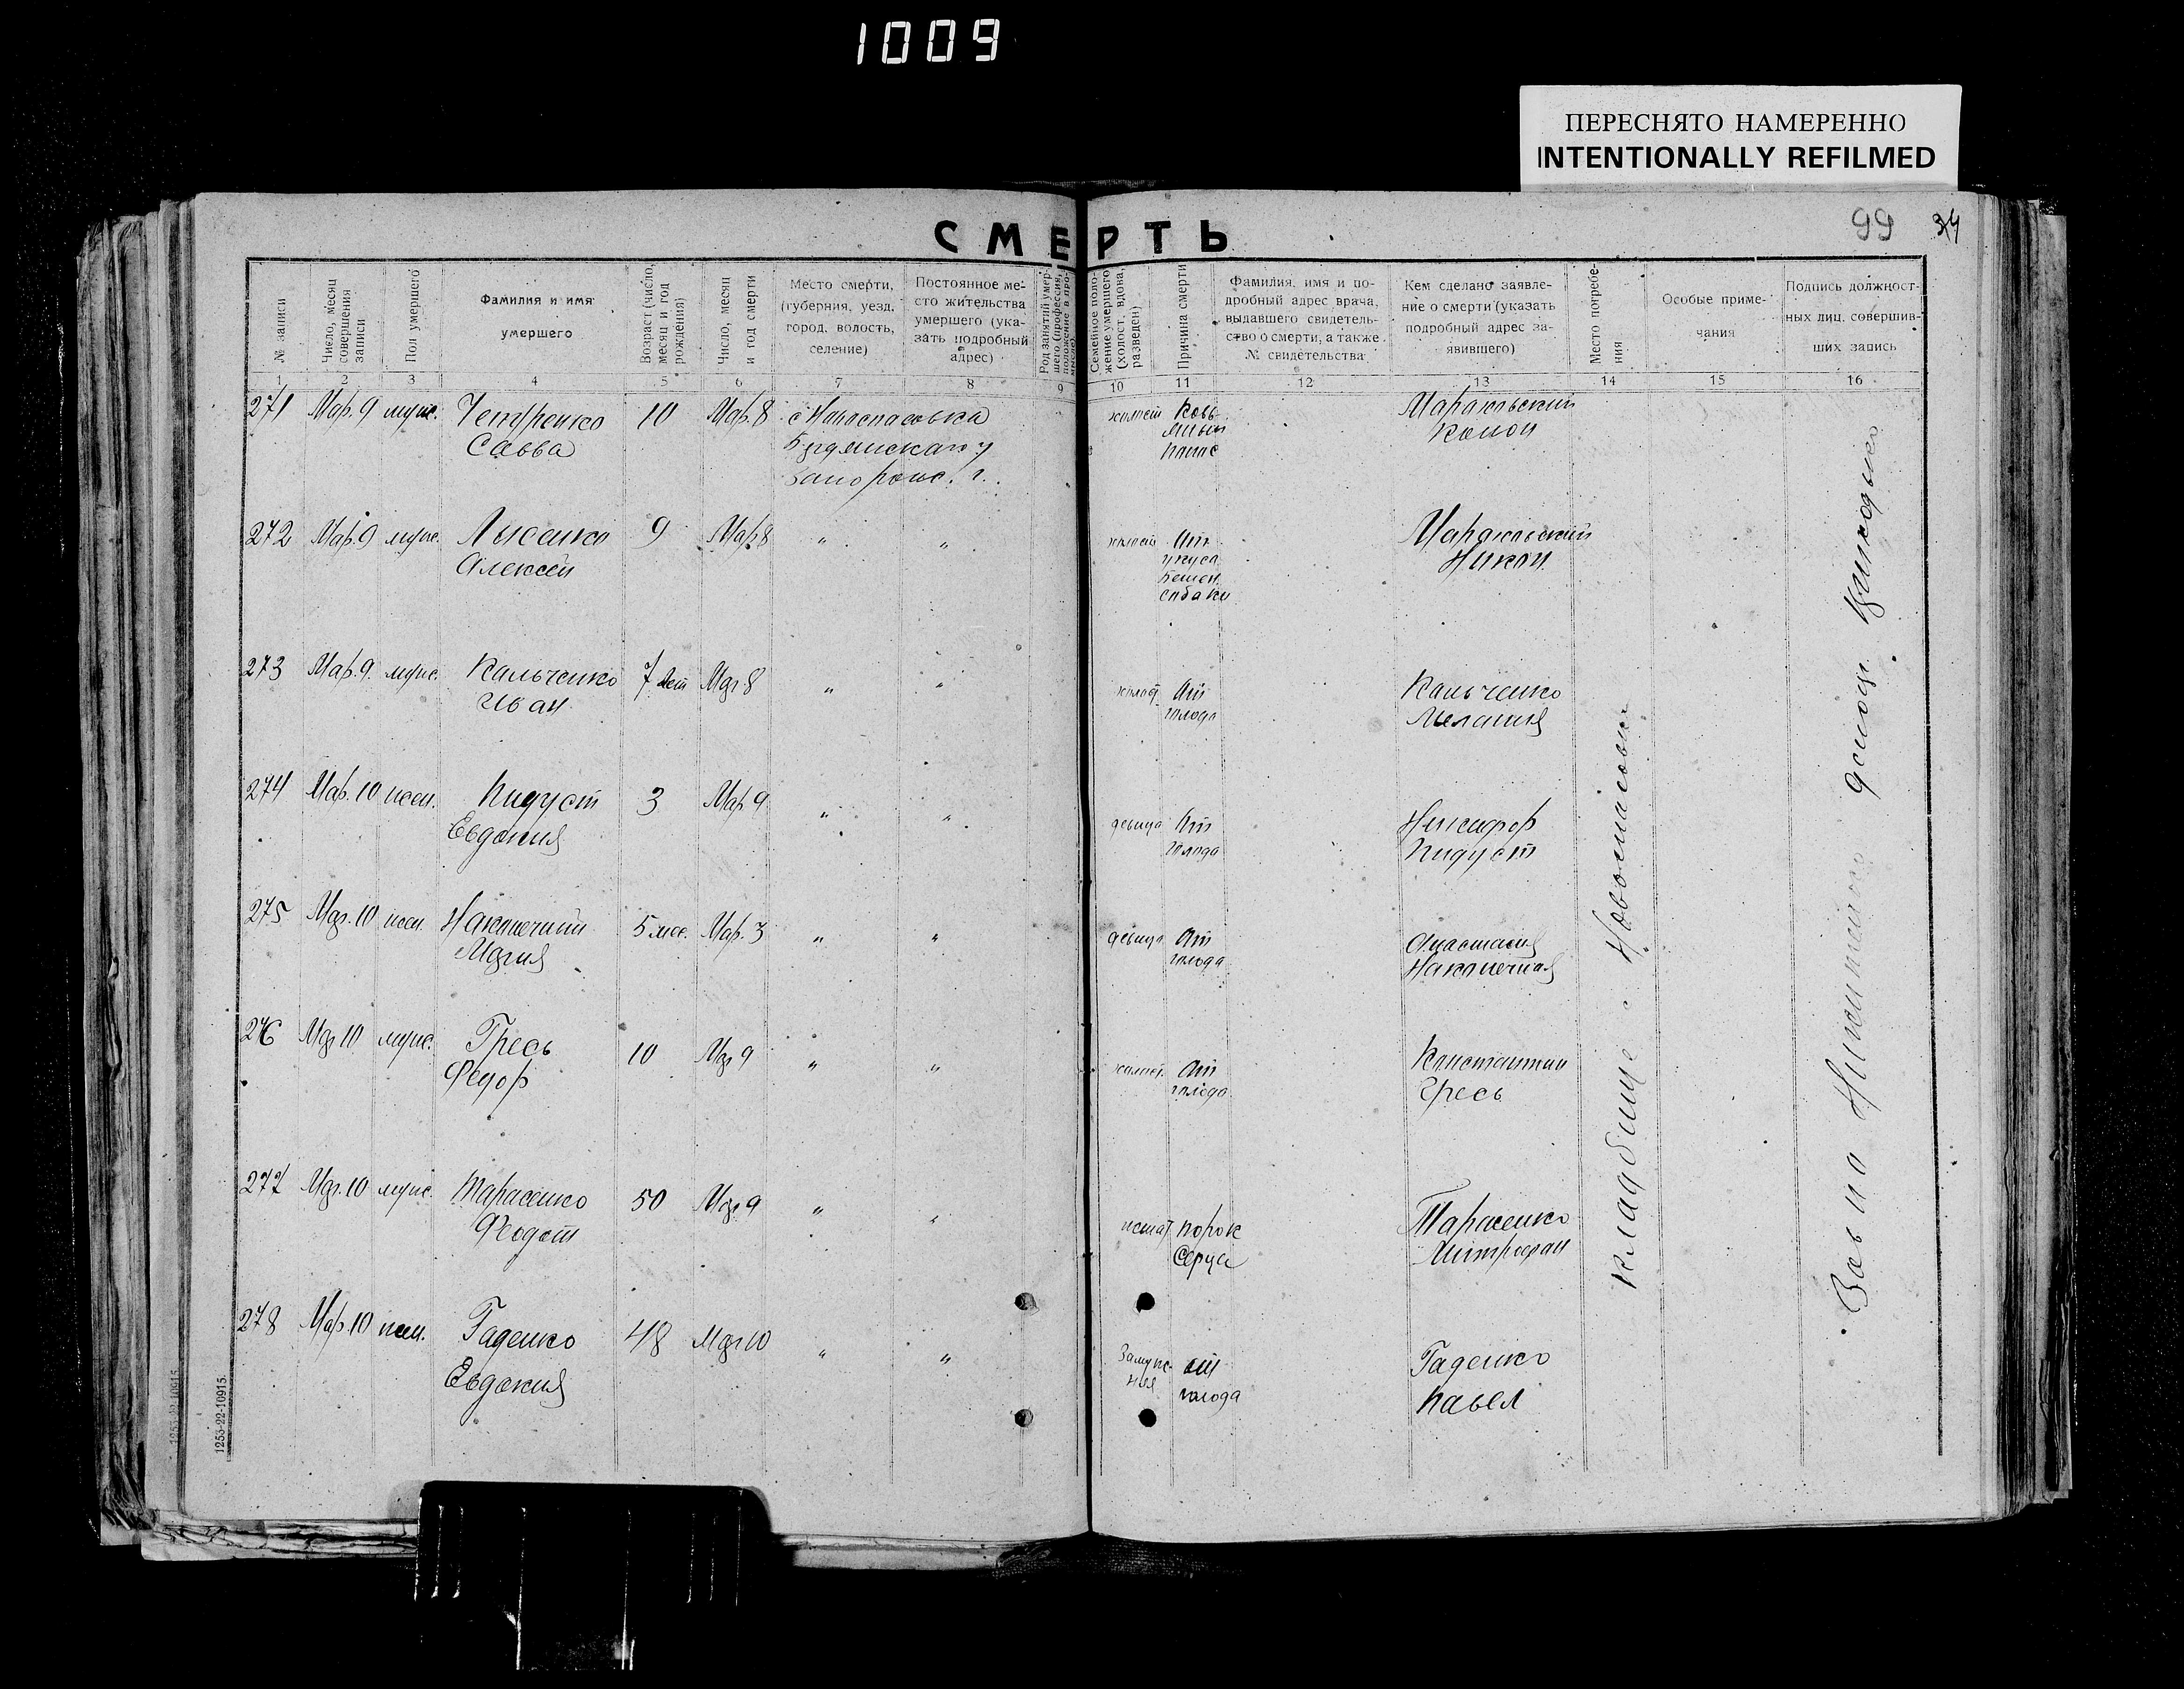 1009
ПЕРЕСНЯТО НАМЕРЕННО
INTENTIONALLY REFILMED
99 34
СМЕРТЬ
№ записи
Число, месяц совершения записи
Пол умершего
Фамилия и имя умершего
Возраст (число, месяц и год рождения)
Число, месяц и год смерти
Место смерти, (губерния, уезд, город, волость, селение)
Постоянное место жительства умершего (указать подробный адрес)
Род занятий умершего (профессия, положение в промысле)
Семейное положение умершего (холост, вдова, разведен)
Причина смерти
Фамилия, имя и подробный адрес врача, выдавшего свидетельство о смерти, а также № свидетельства
Кем сделано заявление о смерти (указать подробный адрес заявившего)
Место погребения
Особые примечания
Подпись должностных лиц, совершивших запись
1 2 3 4 5 6 7 8 9 10 11 12 13 14 15 16
271 Мар. 9 муж. Савва 10 Мар. 8 с Новоспасовка холост
272 Мар. 9 муж. Лысенко Алексей 9 Мар 8 " " холост От укуса бешен. собаки Никон
273 Мар. 9. муж. Кальченко Иван 7 лет Мар 8 " " холост От голода Кальченко Мелания
274 Мар. 10 жен. Пидуст Евдокия 3 Мар 9 " " девица От голода Никифор Пидуст
275 Мар. 10 жен. Наконечный Мария 5 мес. Мар. 3 " " девица От голода Анастасия Наконечная
276 Мар 10 муж. Гресь Федор 10 Мар 9 " " холост. От голода Константин Гресь
277 Мар. 10 муж. Тарасенко Феодот 50 Мар 9 " " женат порок серца Тарасенко Митрофан
278 Мар. 10 жен. Гаденко Евдокия 48 Мар 10 " " Замужняя от голода Гаденко Павел
кладбище с Новоспасовки
1253-22-10915
1253-22-10915.